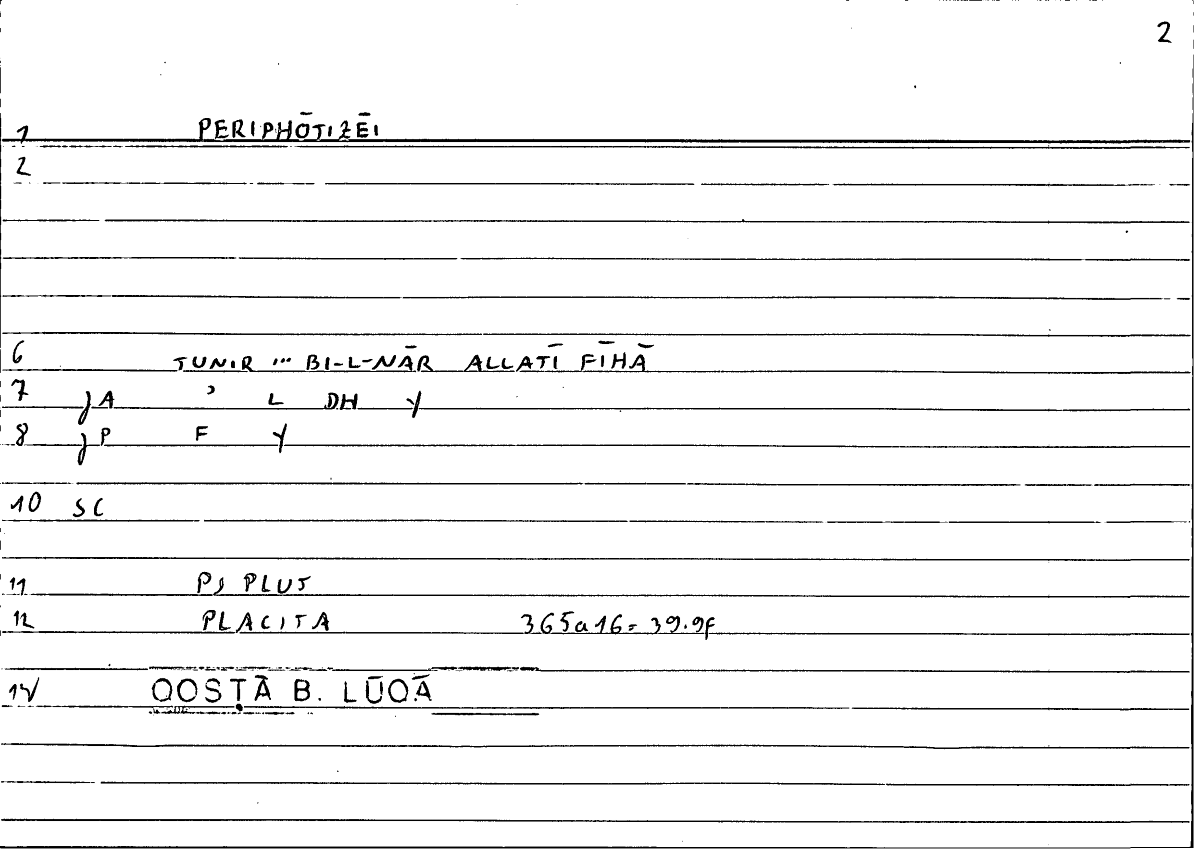 2
1 PERIPHŌTIZĒI
2
6 TUNIR ... BI-L-NĀR ALLATĪ FĪHĀ
7 jA ʾ L DH Y
8 jP F Y
10 SC
11 PS PLUT
12 PLACITA 365a16=39.9f
14 QOSṬĀ B. LŪQĀ